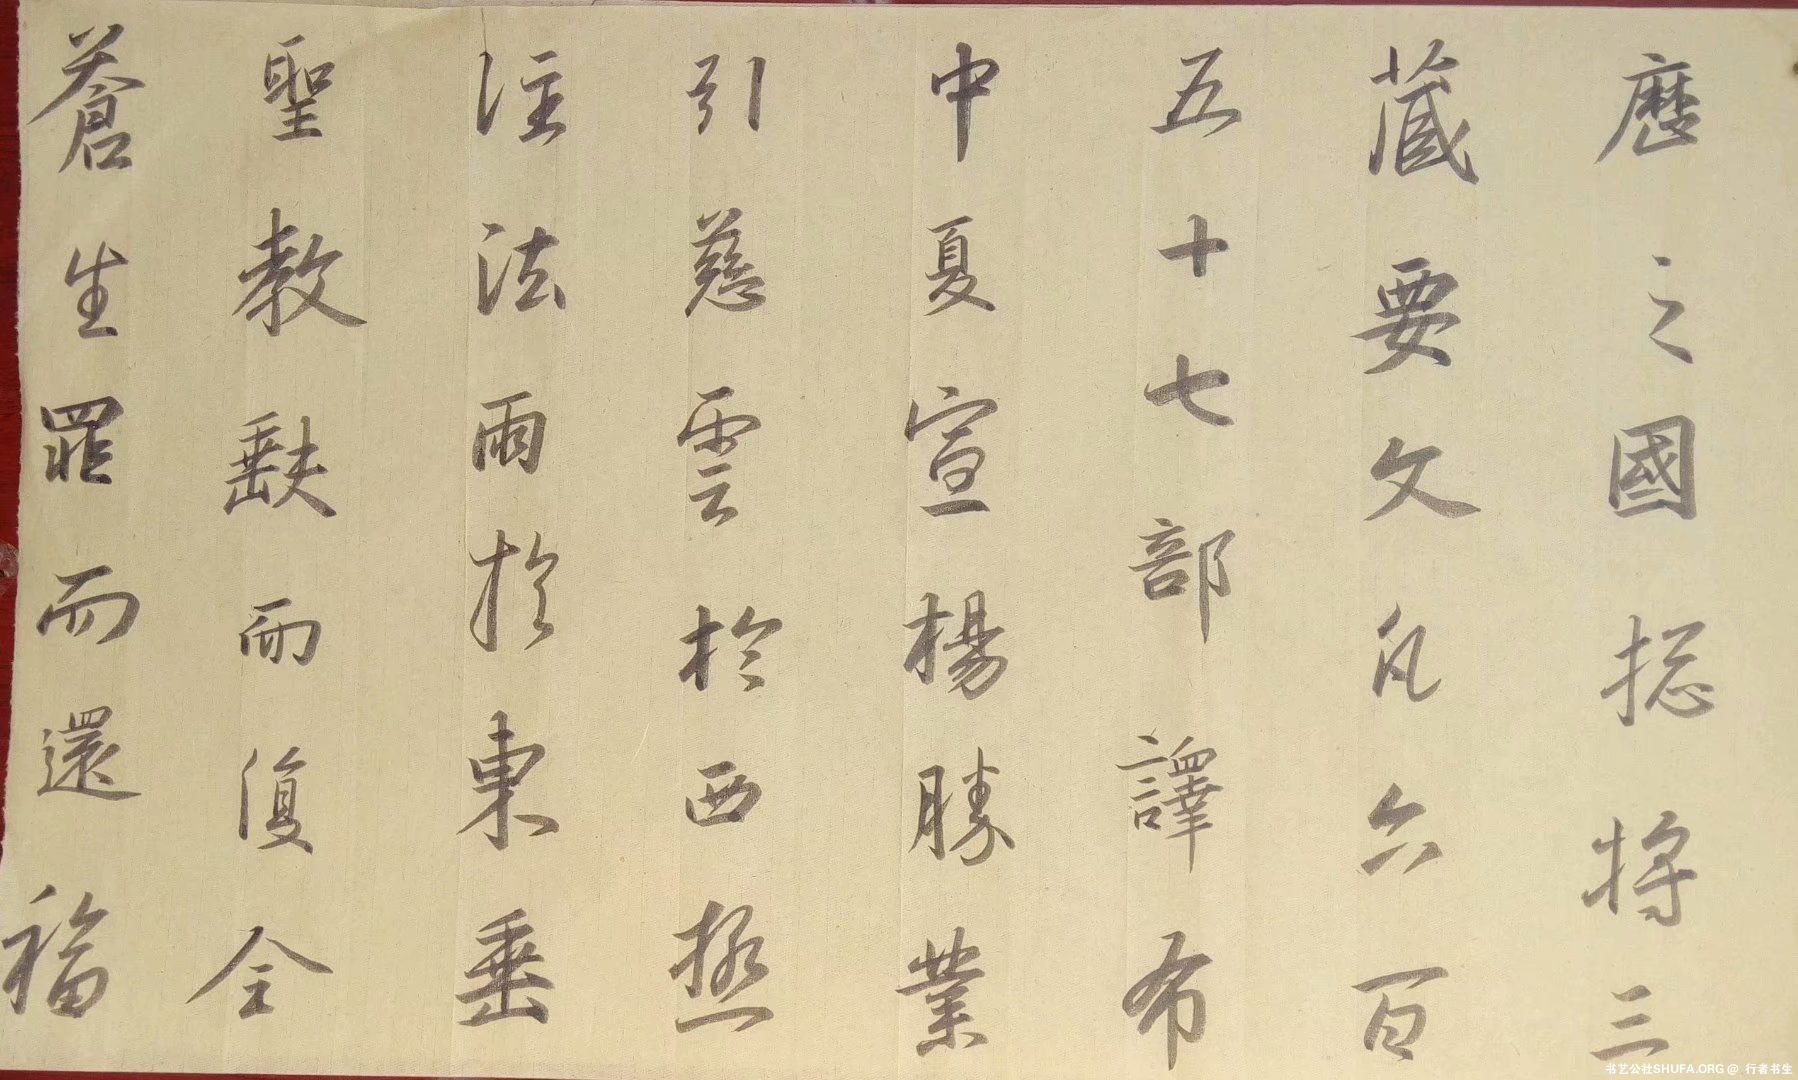 歷之國揔将三
蔵要文凡六百
五十七部譯布
中夏宣楊勝業
引慈雲於西極
注法雨於東垂
聖教缺而復全
蒼生罪而還福
书艺公社SHUFA.ORG @ 行者书生